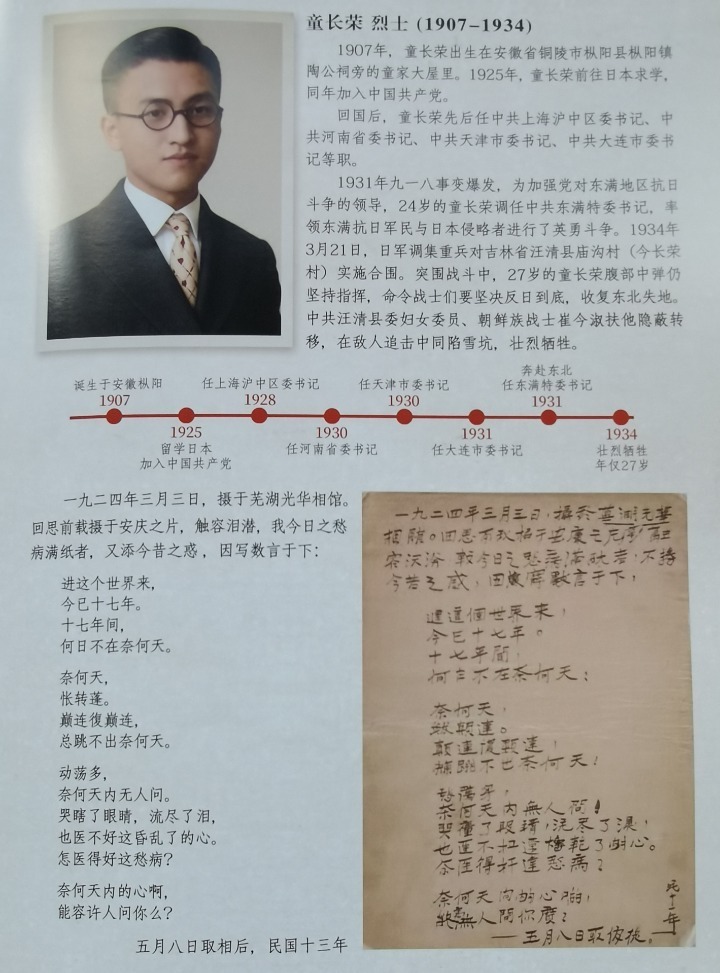 童长荣 烈士 (1907-1934)
1907年，童长荣出生在安徽省铜陵市枞阳县枞阳镇
陶公祠旁的童家大屋里。1925年，童长荣前往日本求学，
同年加入中国共产党。
回国后，童长荣先后任中共上海沪中区委书记、中
共河南省委书记、中共天津市委书记、中共大连市委书
记等职。
1931年九一八事变爆发，为加强党对东满地区抗日
斗争的领导，24岁的童长荣调任中共东满特委书记，率
领东满抗日军民与日本侵略者进行了英勇斗争。1934年
3月21日，日军调集重兵对吉林省汪清县庙沟村（今长荣
村）实施合围。突围战斗中，27岁的童长荣腹部中弹仍
坚持指挥，命令战士们要坚决反日到底，收复东北失地。
中共汪清县委妇女委员、朝鲜族战士崔今淑扶他隐蔽转
移，在敌人追击中同陷雪坑，壮烈牺牲。
诞生于安徽枞阳
1907
1925
留学日本
加入中国共产党
任上海沪中区委书记
1928
1930
任河南省委书记
任天津市委书记
1930
1931
任大连市委书记
奔赴东北
任东满特委书记
1931
1934
壮烈牺牲
年仅27岁
一九二四年三月三日，摄于芜湖光华相馆。
回思前载摄于安庆之片，触容泪潜，我今日之愁
病满纸者，又添今昔之惑，因写数言于下：
进这个世界来，
今已十七年。
十七年间，
何日不在奈何天。
奈何天，
怅转蓬。
巅连復巅连，
总跳不出奈何天。
动荡多，
奈何天内无人问。
哭瞎了眼睛，流尽了泪，
也医不好这昏乱了的心。
怎医得好这愁病？
奈何天内的心啊，
能容许人问你么？
五月八日取相后，民国十三年
一九二四年三月三日，攝於蕪湖光華
今昔之感，因 數言于下，
這個世界来，
今已十七年。
十七年間，
何日不在奈何天；
奈何天，
顛連復顛連，
奈何天内無人問！
哭瞎了眼睛，流尽了淚，
奈何天内的心啊，
人問你麼？